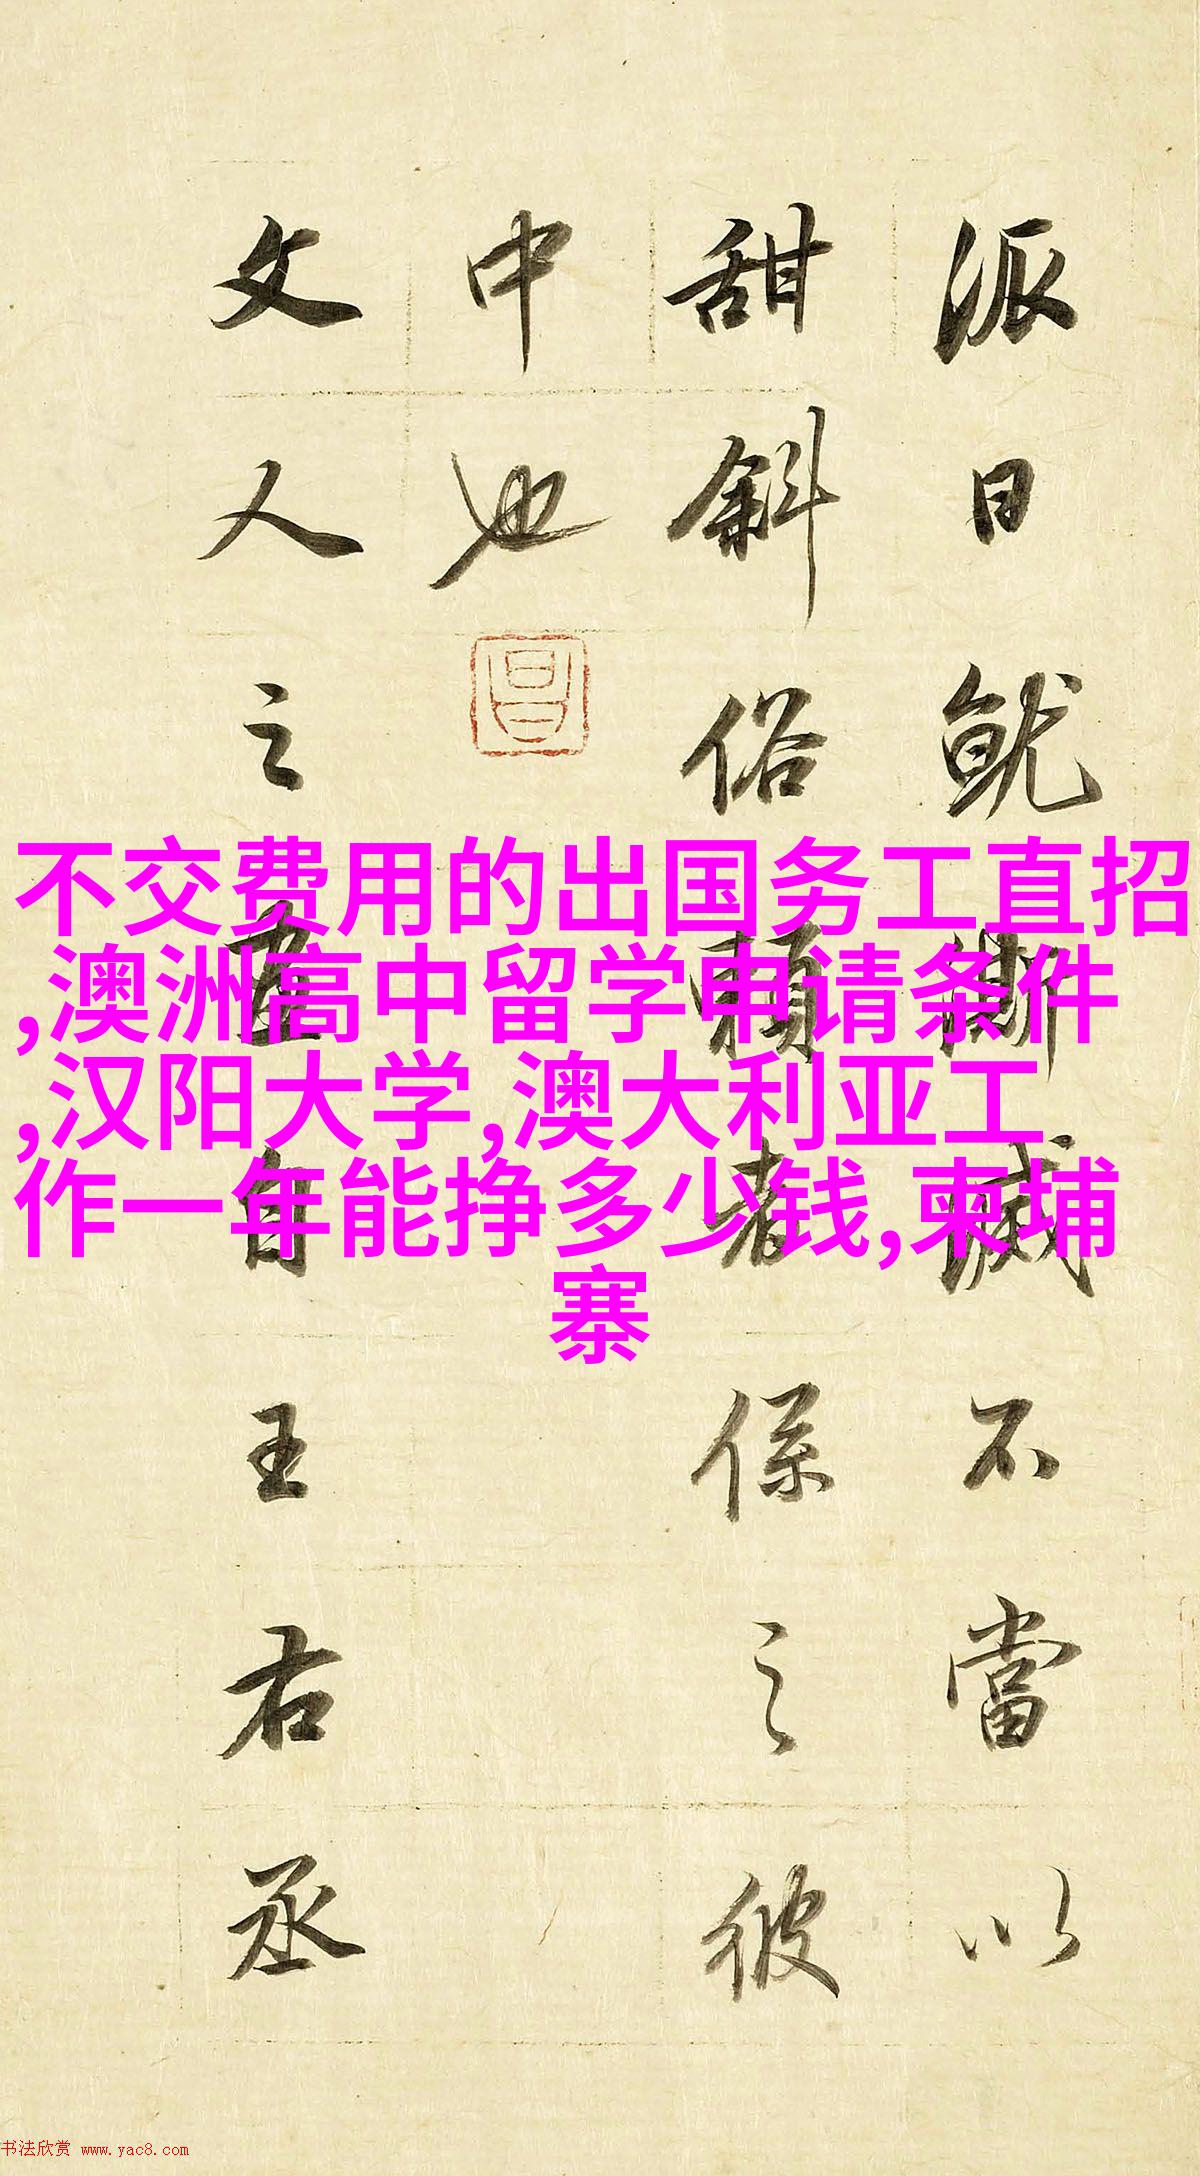 派日就澌滅不當以
甜斜俗賴者係之彼
中也
昌
文人之畫自王右丞
不交费用的出国务工直招
,澳洲高中留学申请条件
,汉阳大学,澳大利亚工
作一年能挣多少钱,柬埔
寨
书法欣赏 www.yac8.com